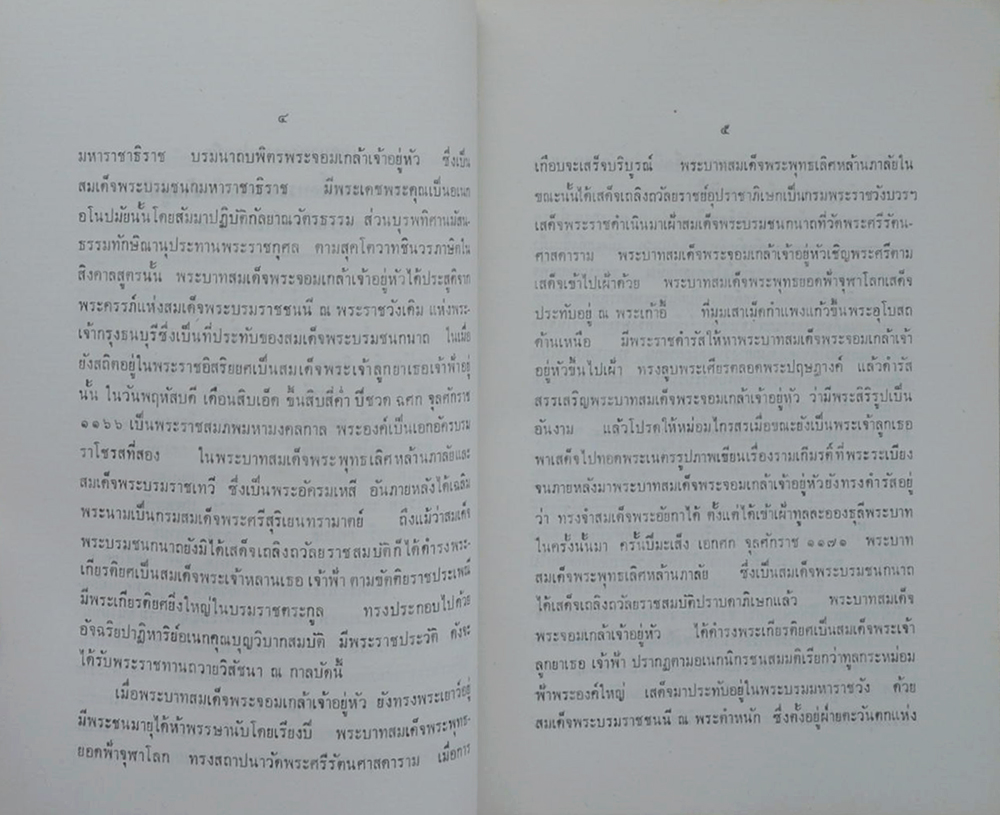 ๔
มหาราชาธิราช บรมนาถบพิตรพระจอมเกล้าเจ้าอยู่หัว ซึ่งเป็น
สมเด็จพระบรมชนกมหาราชาธิราช มีพระเดชพระคุณเป็นอเนก
อโนปมัยนั้นโดยสัมมาปฏิบัติกัลยาณวัตรธรรม ส่วนบุรพทิศานมัสน-
ธรรมทักษิณานุประทานพระราชกุศล ตามสุคโตวาทชินวรภาษิตใน
สิงคาลสูตรนั้น พระบาทสมเด็จพระจอมเกล้าเจ้าอยู่หัวได้ประสูติจาก
พระครรภ์แห่งสมเด็จพระบรมราชชนนี ณ พระราชวังเดิม แห่งพระ-
เจ้ากรุงธนบุรีซึ่งเป็นที่ประทับของสมเด็จพระบรมชนกนาถ ในเมื่อ
ยังสถิตอยู่ในพระราชอิสริยยศเป็นสมเด็จพระเจ้าลูกยาเธอเจ้าฟ้าอยู่
นั้น ในวันพฤหัสบดี เดือนสิบเอ็ด ขึ้นสิบสี่ค่ำ ปีชวด ฉศก จุลศักราช
๑๑๖๖ เป็นพระราชสมภพมหามงคลกาล พระองค์เป็นเอกอัครบรม
ราโชรสที่สอง ในพระบาทสมเด็จพระพุทธเลิศหล้านภาลัยและ
สมเด็จพระบรมราชเทวี ซึ่งเป็นพระอัครมเหสี อันภายหลังได้เฉลิม
พระนามเป็นกรมสมเด็จพระศรีสุริเยนทรามาตย์ ถึงแม้ว่าสมเด็จ
พระบรมชนกนาถยังมิได้เสด็จเถลิงถวัลยราชสมบัติก็ได้ดำรงพระ-
เกียรติยศเป็นสมเด็จพระเจ้าหลานเธอ เจ้าฟ้า ตามขัตติยราชประเพณี
มีพระเกียรติยศยิ่งใหญ่ในบรมราชตระกูล ทรงประกอบไปด้วย
อัจฉริยปาฏิหาริย์อเนกคุณบุญวิบากสมบัติ มีพระราชประวัติ ดังจะ
ได้รับพระราชทานถวายวิสัชนา ณ กาลบัดนี้
เมื่อพระบาทสมเด็จพระจอมเกล้าเจ้าอยู่หัว ยังทรงพระเยาว์อยู่
มีพระชนมายุได้ห้าพรรษานับโดยเรียงปี พระบาทสมเด็จพระพุทธ-
ยอดฟ้าจุฬาโลก ทรงสถาปนาวัดพระศรีรัตนศาสดาราม เมื่อการ
๕
เกือบจะเสร็จบริบูรณ์ พระบาทสมเด็จพระพุทธเลิศหล้านภาลัยใน
ขณะนั้นได้เสด็จเถลิงถวัลยราชย์อุปราชาภิเษกเป็นกรมพระราชวังบวรฯ
เสด็จพระราชดำเนินมาเฝ้าสมเด็จพระบรมชนกนาถที่วัดพระศรีรัตน-
ศาสดาราม พระบาทสมเด็จพระจอมเกล้าเจ้าอยู่หัวเชิญพระศรีตาม
เสด็จเข้าไปเฝ้าด้วย พระบาทสมเด็จพระพุทธยอดฟ้าจุฬาโลกเสด็จ
ประทับอยู่ ณ พระเก้าอี้ ที่มุมเสาเม็ดกำแพงแก้วขึ้นพระอุโบสถ
ด้านเหนือ มีพระราชดำรัสให้หาพระบาทสมเด็จพระจอมเกล้าเจ้า
อยู่หัวขึ้นไปเฝ้า ทรงลูบพระเศียรตลอดพระปฤษฎางค์ แล้วดำรัส
สรรเสริญพระบาทสมเด็จพระจอมเกล้าเจ้าอยู่หัว ว่ามีพระสิริรูปเป็น
อันงาม แล้วโปรดให้หม่อมไกรสรเมื่อขณะยังเป็นพระเจ้าลูกเธอ
พาเสด็จไปทอดพระเนตรรูปภาพเขียนเรื่องรามเกียรติ์ที่พระระเบียง
จนภายหลังมาพระบาทสมเด็จพระจอมเกล้าเจ้าอยู่หัวยังทรงดำรัสอยู่
ว่า ทรงจำสมเด็จพระอัยกาได้ ตั้งแต่ได้เข้าเฝ้าทูลละอองธุลีพระบาท
ในครั้งนั้นมา ครั้นปีมะเส็ง เอกศก จุลศักราช ๑๑๗๑ พระบาท
สมเด็จพระพุทธเลิศหล้านภาลัย ซึ่งเป็นสมเด็จพระบรมชนกนาถ
ได้เสด็จเถลิงถวัลยราชสมบัติปราบดาภิเษกแล้ว พระบาทสมเด็จ
พระจอมเกล้าเจ้าอยู่หัว ได้ดำรงพระเกียรติยศเป็นสมเด็จพระเจ้า
ลูกยาเธอ เจ้าฟ้า ปรากฏตามอเนกนิกรชนสมมติเรียกว่าทูลกระหม่อม
ฟ้าพระองค์ใหญ่ เสด็จมาประทับอยู่ในพระบรมมหาราชวัง ด้วย
สมเด็จพระบรมราชชนนี ณ พระตำหนัก ซึ่งตั้งอยู่ฝ่ายตะวันตกแห่ง